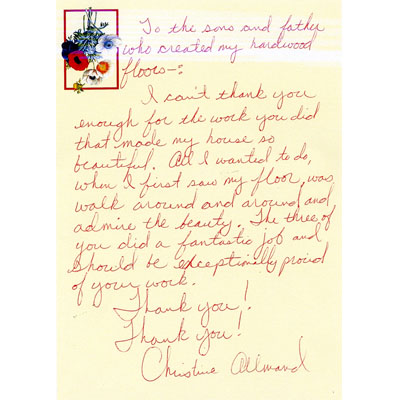 To the sons and father
who created my hardwood
floors-:
I can't thank you
enough for the work you did
that made my house so
beautiful. All I wanted to do,
when I first saw my floor, was
walk around and around and
admire the beauty. The three of
you did a fantastic job and
should be exceptionally proud
of your work.
Thank you!
Thank you!
Christine Allmand